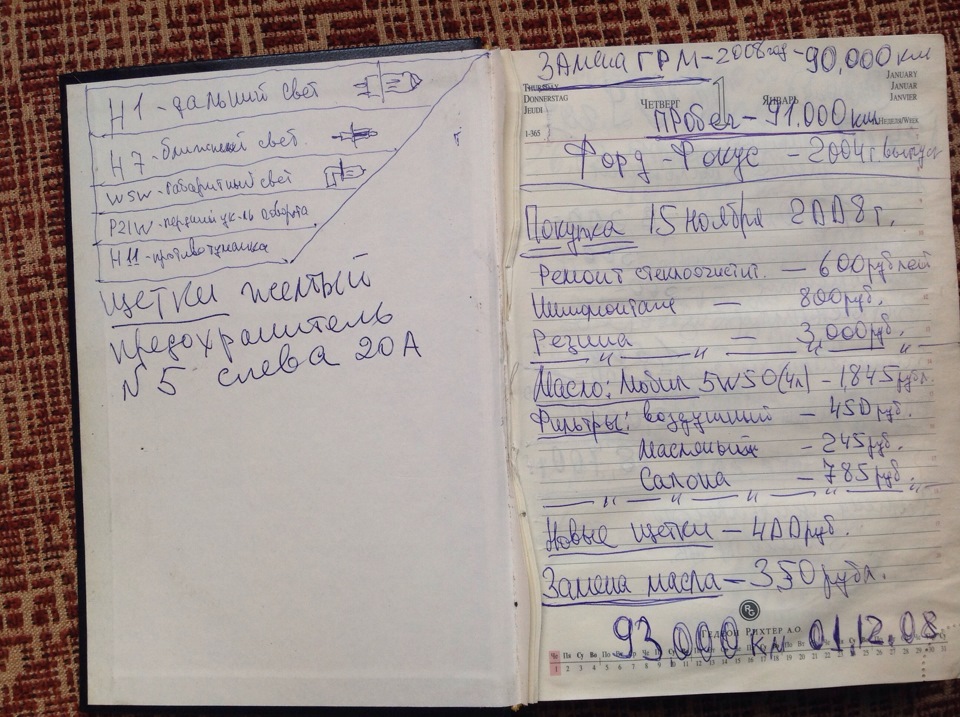 Н1 - дальний свет
Н7 - ближний свет.
W5W - габаритный свет
P21W - передний ук-ль поворота
Н11 - противотуманка
щетки желтый
предохранитель
N5 слева 20А
Замена ГРМ - 2008 год - 90.000 км
THURSDAY
DONNERSTAG
JEUDI
1-365
ЧЕТВЕРГ
1
ЯНВАРЬ
JANUARY
JANUAR
JANVIER
НЕДЕЛЯ/WEEK
Пробег - 91.000 км
Форд - Фокус - 2004 г. выпуск
Покупка 15 Ноября 2008 г.
Ремонт стеклоочистит. - 600 рублей
Шиномонтаж - 800 руб.
Резина - 3.000 руб.
Масло: Мобил 5W50 (4л) - 1845 рубл.
Фильтры: воздушный - 450 руб.
Масляный - 245 руб.
Салона - 785 руб.
Новые щетки - 400 руб.
Замена масла - 350 рубл.
RG
ГЕДЕОН РИХТЕР А.О.
93 000 км 01.12.08
Че Пя Су Во По
1 2 3 4 5 6 7 8 9 10 11 12 13 14 15 16 17 18 19 20 21 22 23 24 25 26 27 28 29 30 31